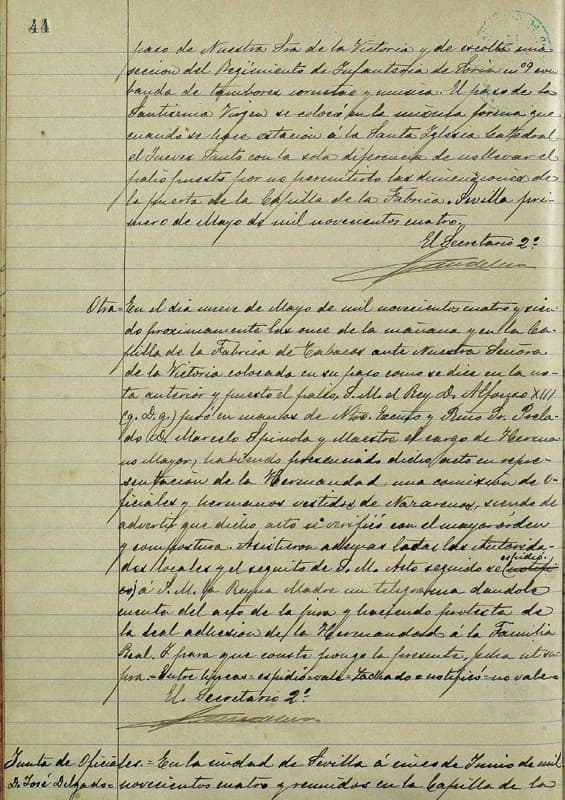 44
paso de Nuestra Sra de la Victoria y de escolta una
seccion del Regimiento de Infanteria de Soria nº 9 con
banda de tambores cornetas y musica. El paso de la
Santisima Virgen se colocó en la misma forma que
cuando se hace estación á la Santa Iglesia Catedral
el Jueves Santo con la sola diferencia de no llevar el
palio puesto por no permitirlo las dimenziones de
la puerta de la Capilla de la Fabrica. Sevilla pri-
mero de Mayo de mil novecientos cuatro,
El Secretario 2º
Otra = En el dia nueve de Mayo de mil novecientos cuatro y sien-
do proximamente las once de la mañana y en la Ca-
pilla de la Fabrica de Tabacos ante Nuestra Señora
de la Victoria colocada en su paso como se dice en la no-
ta anterior y puesto el palio, S. M. el Rey D. Alfonso XIII
(q. D. g.) juró en manos de Ntro. Excmo y Rmo Sr. Prela-
do D. Marcelo Spinola y Maestre el cargo de Herma
no Mayor; habiendo presenciado dicho acto en repre-
sentación de la Hermandad una comisión de O-
ficiales y hermanos vestidos de Nazarenos, siendo de
advertir que dicho acto se verificó con el mayor órden
y compostura. Asistieron ademas todas las Autorida-
des locales y el seguito de S. M. Acto seguido se espidió
(notifi
có) á S. M. la Reyna Madre un telegrama dandole
cuenta del acto de la jura y haciendo protesta de
la leal adhesion de la Hermandad á la Familia
Real. Y para que conste pongo la presente, fecha ut su-
pra. = Entre lineas = espidió = vale = Tachado = notificó = no vale =
El Secretario 2º
Junta de Oficiales. = En la ciudad de Sevilla á cinco de Junio de mil
D. José Delgado = novecientos cuatro y reunidos en la Capilla de la